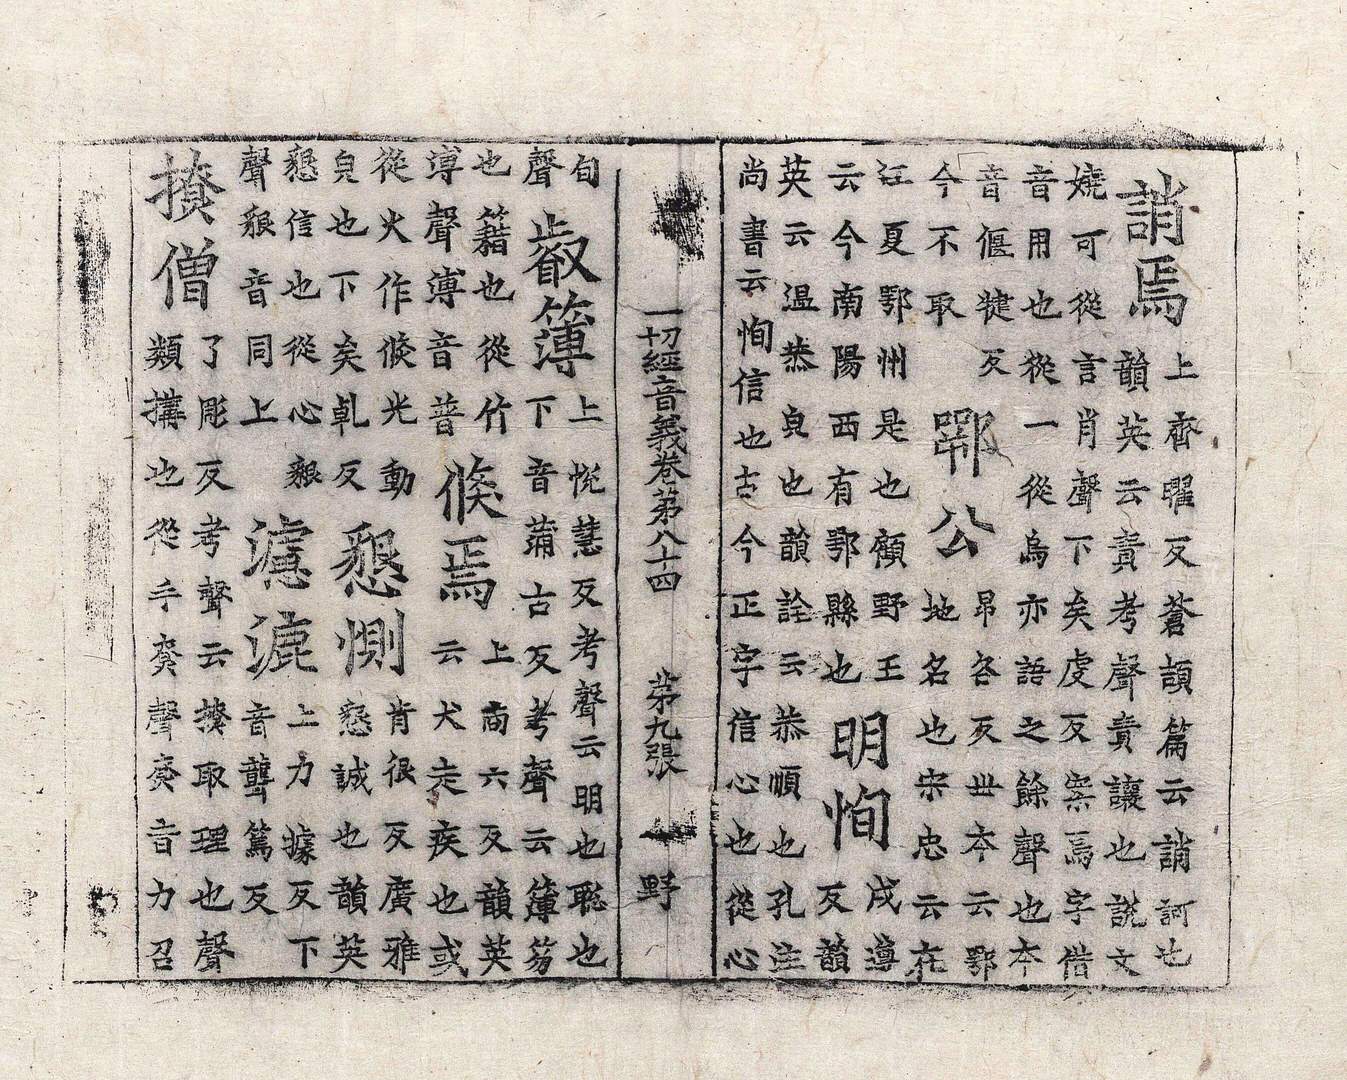 誚焉
上齊曜反蒼頡篇云誚訶也
韻英云責考聲責讓也說文
嬈可從言肖聲下矣虔反案焉字借
音用也從一從烏亦語之餘聲也本
音偃揵反
今不取
鄂公
昂各反丗本云鄂
地名也宋忠云在
江夏鄂州是也顧野王
云今南陽西有鄂縣也
明恂
戌遵
反韻
英云温恭皃也韻詮云恭順也孔注
尚書云恂信也古今正字信心也從心
一切經音義卷第八十四 第九張 野
旬
聲
叡簿
上恱慧反考聲云明也聡也
下音蒲古反考聲云簿笏
也籍也從竹
溥聲溥音普
倐焉
上商六反韻英
云犬走疾也或
從火作倐光動
皃也下矣軋反
懇惻
肯很反廣雅
懇誠也韻英
懇信也從心貇
聲貇音同上
濾漉
上力據反下
音聾篤反
撩僧
了彫反考聲云撩取理也聲
類搆也從手尞聲尞音力召